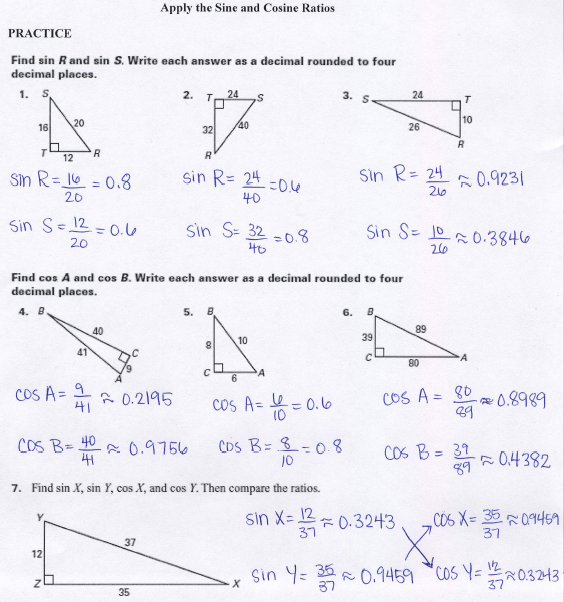 Apply the Sine and Cosine Ratios
PRACTICE
Find sin R and sin S. Write each answer as a decimal rounded to four
decimal places.
1. S 16 20 T 12 R
2. T 24 S 32 40 R
3. S 24 T 26 10 R
sin R = 16/20 = 0.8
sin R = 24/40 = 0.6
sin R = 24/26 ≈ 0.9231
sin S = 12/20 = 0.6
sin S = 32/40 = 0.8
sin S = 10/26 ≈ 0.3846
Find cos A and cos B. Write each answer as a decimal rounded to four
decimal places.
4. B 40 41 C 9 A
5. B 8 10 C 6 A
6. B 89 39 C 80 A
cos A = 9/41 ≈ 0.2195
cos A = 6/10 = 0.6
cos A = 80/89 ≈ 0.8989
cos B = 40/41 ≈ 0.9756
cos B = 8/10 = 0.8
cos B = 39/89 ≈ 0.4382
7. Find sin X, sin Y, cos X, and cos Y. Then compare the ratios.
Y 37 12 Z 35 X
sin X = 12/37 ≈ 0.3243
cos X = 35/37 ≈ 0.9459
sin Y = 35/37 ≈ 0.9459
cos Y = 12/37 ≈ 0.3243